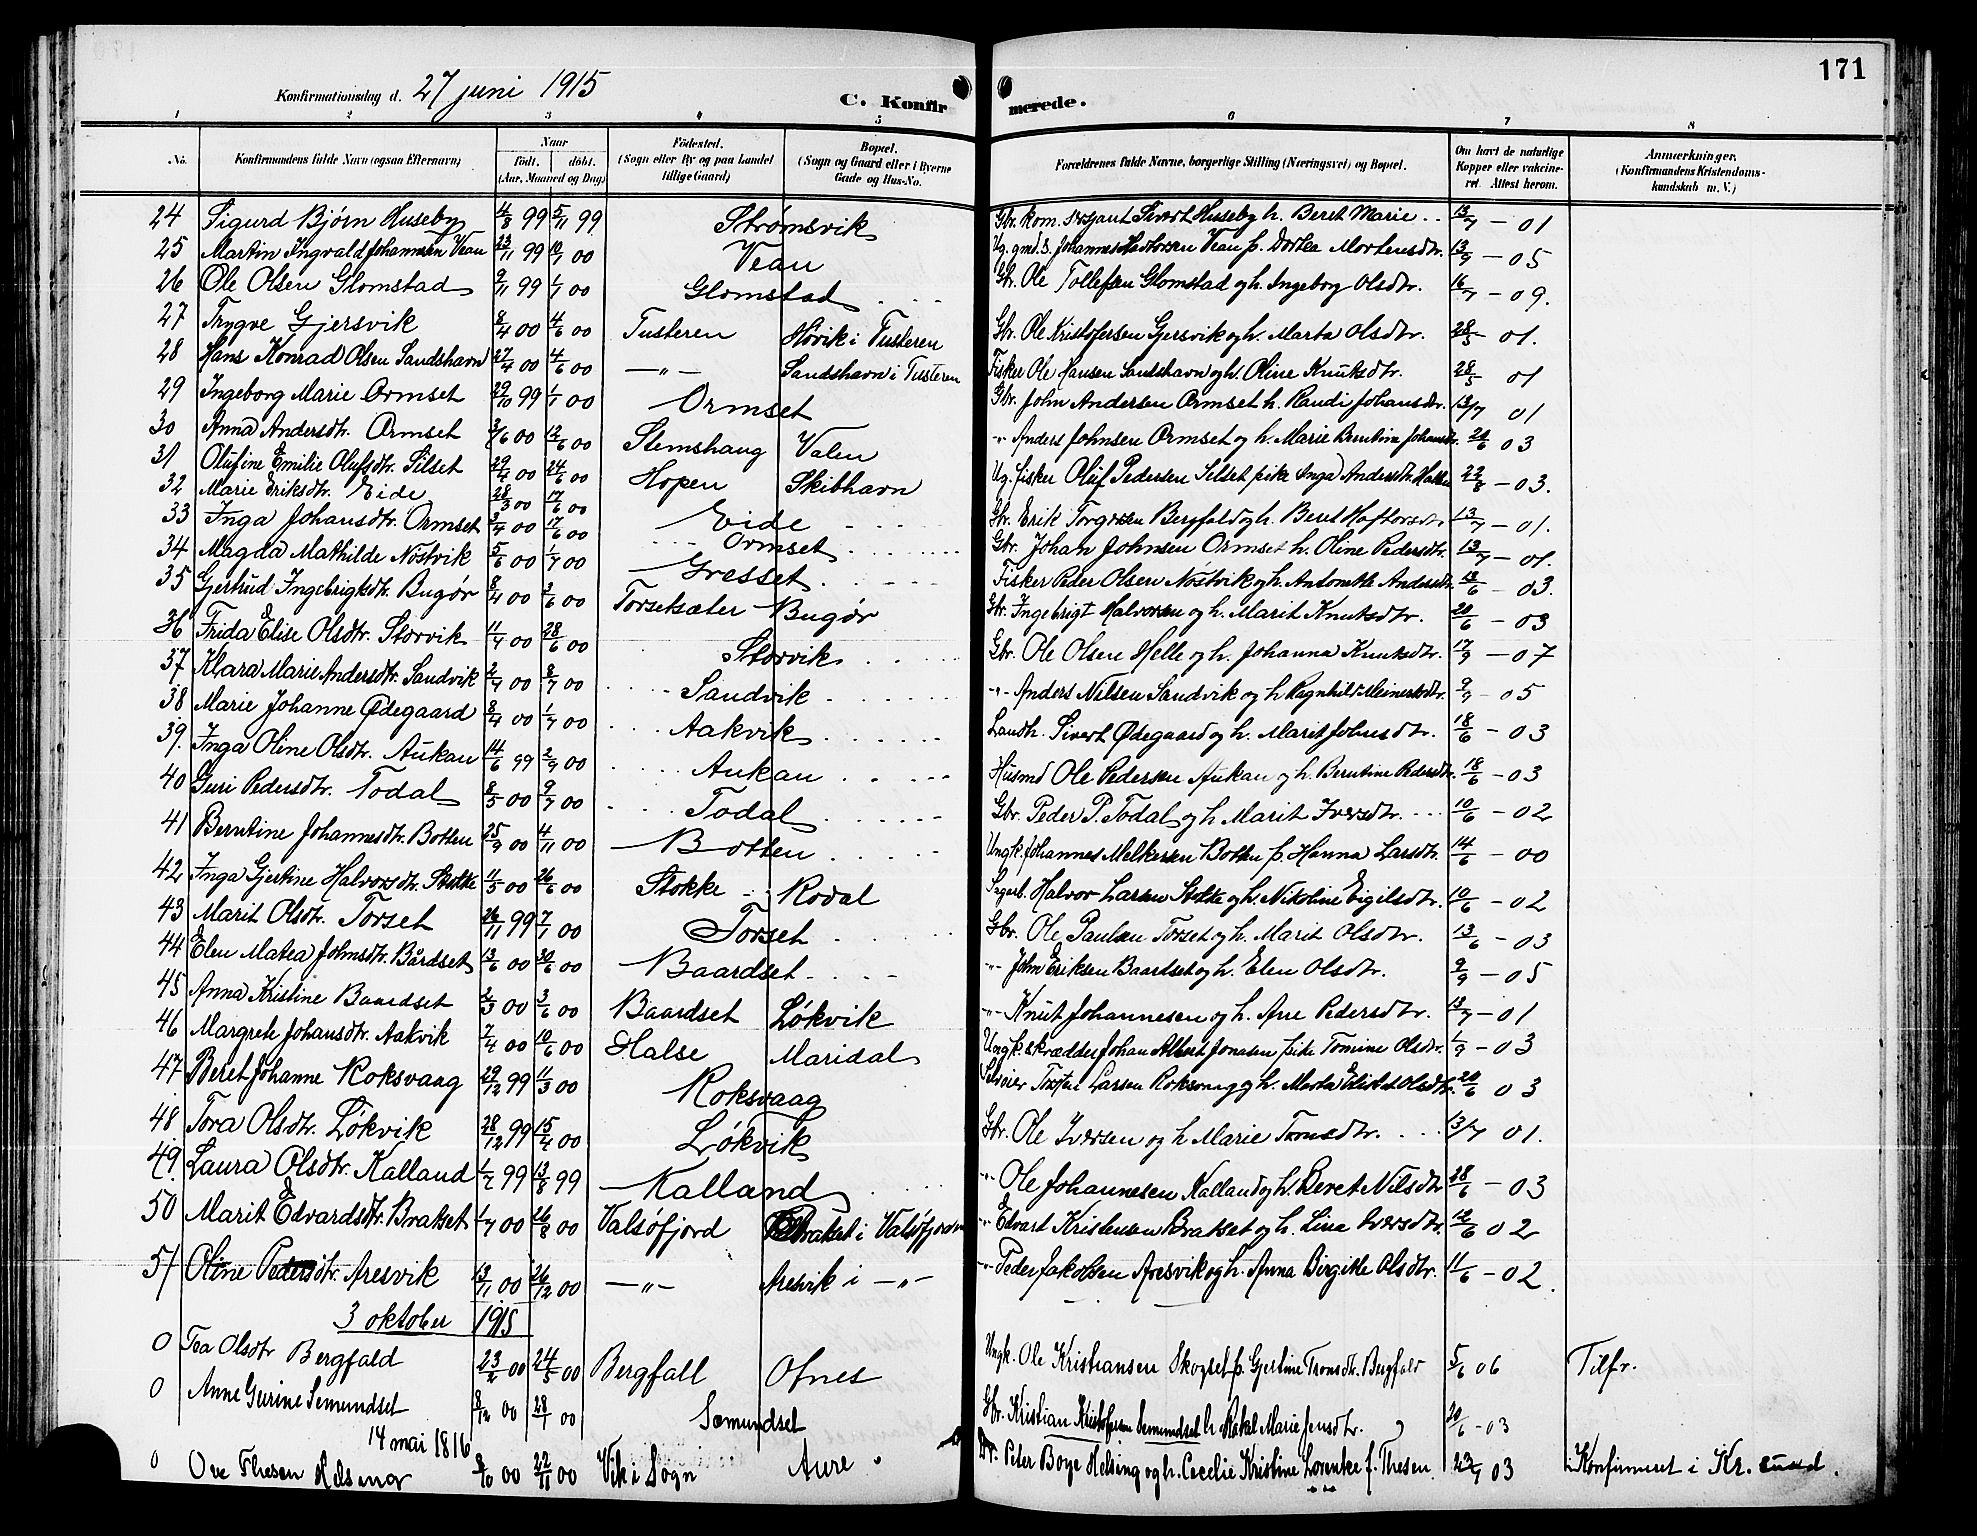 171
Konfirmationsdag d. 27 juni 1915
C. Konfirmerede.
1 2 3 4 5 6 7 8
No. Konfirmandens fulde Navn (ogsaa Efternavn) Naar födt. döbt. (Aar, Maaned og Dag) Födested. (Sogn eller By og paa Landet tillige Gaard) Bopæl. (Sogn og Gaard eller i Byerne Gade og Hus-No. Forældrenes fulde Navne, borgerlige Stilling (Næringsvei) og Bopæl. Om havt de naturlige Kopper eller vakcineret. Attest herom. Anmærkninger. (Konfirmandens Kristendomskundskab m. V.)
24 Sigurd Bjørn Huseby 4/8 99 5/11 99 Strømsvik Gbr. kom. sergant Sivert Huseby h. Beret Marie 13/7 - 01
25 Martin Ingvald Johannesen Vean 23/11 99 10/1 00 Vean Ug. gmd. s. Johannes Vean p. Dortea Mortensdtr. 13/9 - 05
26 Ole Olsen Glomstad 9/11 99 1/1 00 Glomstad Gbr. Ole Tollefsen Glomstad og h. Ingeborg Olsdtr. 16/7 - 09.
27 Trygve Gjersvik 8/4 00 4/6 00 Tusteren Høvik i Tusteren Gbr. Ole Kristofersen Gjersvik og h. Marta Olsdtr. 28/5 - 01.
28 Hans Konrad Olsen Sandshavn 27/4 00 4/6 00 —"— Sandshavn i Tusteren Fisker Ole Hansen Sandshavn og h. Oline Knutsdtr. 28/5 01
29 Ingeborg Marie Ormset 29/10 99 1/1 00 Ormset Gbr. John Andersen Ormset h. Randi Johansdtr. 13/7 01
30 Anna Andersdtr. Ormset 3/6 00 12/6 00 Stemshaug Valen "- Anders Johnsen Ormset og h. Marie Berntine Johansdtr. 20/6 03
31 Olufine Emilie Olufsdtr. Silset 29/4 00 24/6 00 Hopen Skibhavn Ug. fisker Oluf Pedersen Silset pike Inga Andersdtr. 22/8 - 03.
32 Marie Eriksdtr. Eide 28/3 00 17/6 00 Eide Gbr. Erik Torgersen Bergfald og h. Beret Haftorsdtr. 13/7 - 01.
33 Inga Johansdtr. Ormset 3/4 00 17/6 00 Ormset Gbr. Johan Johnsen Ormset h. Oline Pedersdtr. 13/7 - 01.
34 Magda Mathilde Nöstvik 5/6 00 1/7 00 Gresset Fisker Peder Olsen Nöstvik og h. Antonette Andersdtr. 18/6 - 03.
35 Gjertrud Ingebrigtsdtr. Bugør 8/4 00 3/6 00 Torsetsæter Bugør Gbr. Ingebrigt Halvorsen og h. Marit Knutsdtr. 20/6 - 03
36 Frida Elise Olsdtr. Storvik 11/4 00 28/6 00 Storvik Gbr. Ole Olsen Helle og h. Johanna Knutsdtr. 17/9 - 07
37 Klara Marie Andersdtr. Sandvik 2/4 00 8/7 00 Sandvik "- Anders Nilsen Sandvik og h Ragnhild Meinertsdtr. 9/9 - 05
38 Marie Johanne Ødegaard 8/4 00 1/7 00 Aakvik Landh. Sivert Ødegaard og h. Marit Johnsdtr. 18/6 - 03
39. Inga Oline Olsdtr. Aukan 14/6 99 2/9 00 Aukan Husmd Ole Pedersen Aukan og h. Berntine Pedersdtr. 18/6 - 03
40 Guri Pedersdtr. Todal 8/5 00 9/7 00 Todal Gbr. Peder P. Todal og h Marit Iversdtr. 10/6 - 02
41 Berntine Johannesdtr. Botten 25/9 00 4/11 00 Botten Ungk. Johannes Melkersen Botten p. Hanna Larsdtr. 14/6 - 00
42 Inga Gjertine Halvorsdtr. Stokke 11/5 00 26/6 00 Stokke Rodal Halvor Larsen Stokke og h. Nikoline Eigilsdtr. 10/6 - 02
43 Marit Olsdtr. Torset 26/11 99 7/1 00 Torset Gbr. Ole Paulsen Torset og h. Marit Olsdtr. 13/6 - 03
44 Elen Matea Johnsdtr. Bårdset 13/6 00 30/6 00 Baardset "- John Eriksen Baardset og h. Elen Olsdtr. 9/9 - 05
45 Anna Kristine Baardset 2/3 00 3/6 00 Baardset Løkvik "- Knut Johannesen og h. Ane Pedersdtr. 13/7 - 01
46 Margrete Johansdtr. Aakvik 7/4 00 10/6 00 Halse Maridal Ungk. skrædder Johan Albert Jonasen pike Tomine Olsdtr. 1/9 - 03
47 Beret Johanne Roksvaag 29/12 99 11/3 00 Roksvaag Selveier Larsen Roksvaag og h. Marta Olsdtr. 20/6 03
48 Tora Olsdtr. Løkvik 28/12 99 15/4 00 Løkvik Gbr. Ole Iversen og h Marie Tronsdtr. 13/7 01.
49. Laura Olsdtr. Kalland 1/7 99 13/8 99 Kalland "- Ole Johannesen Kalland og h. Beret Nilsdtr 28/6 - 03
50 Marit Edvardsdtr. Brakset 1/7 00 26/8 00 Valsøfjord Brakset i Valsøfjord "- Edvart Kristensen Brakset og h. Lina Iversdtr. 12/6 02
51 Oline Pedersdtr. Aresvik 13/11 00 26/12 00 —"— Aresvik i —"— "- Peder Jakobsen Aresvik og h. Anna Birgitte Olsdtr. 11/6 - 02.
3 oktober 1915
0 Tea Olsdtr Bergfald 23/2 00 24/5 00 Bergfall Ofnes Ungk. Ole Kristiansen Skogset p. Gjertine Tronsdtr. Bergfald 5/6 06 Tilfr.
0 Anne Gurine Semundset 8/12 00 28/1 00 Semundset Gbr. Kristian Kristofersen Semundset h Rakel Marie Jensdtr. 20/6 - 03
14 mai 1816
0 Ove Thesen Helsing 8/10 00 22/11 00 Vik i Sogn Aure Dr. Peter Boye Helsing og h. Cecelie Kristine Lorentze f. Thesen. 23/7 03 Konfirmeret i Kr. sund.